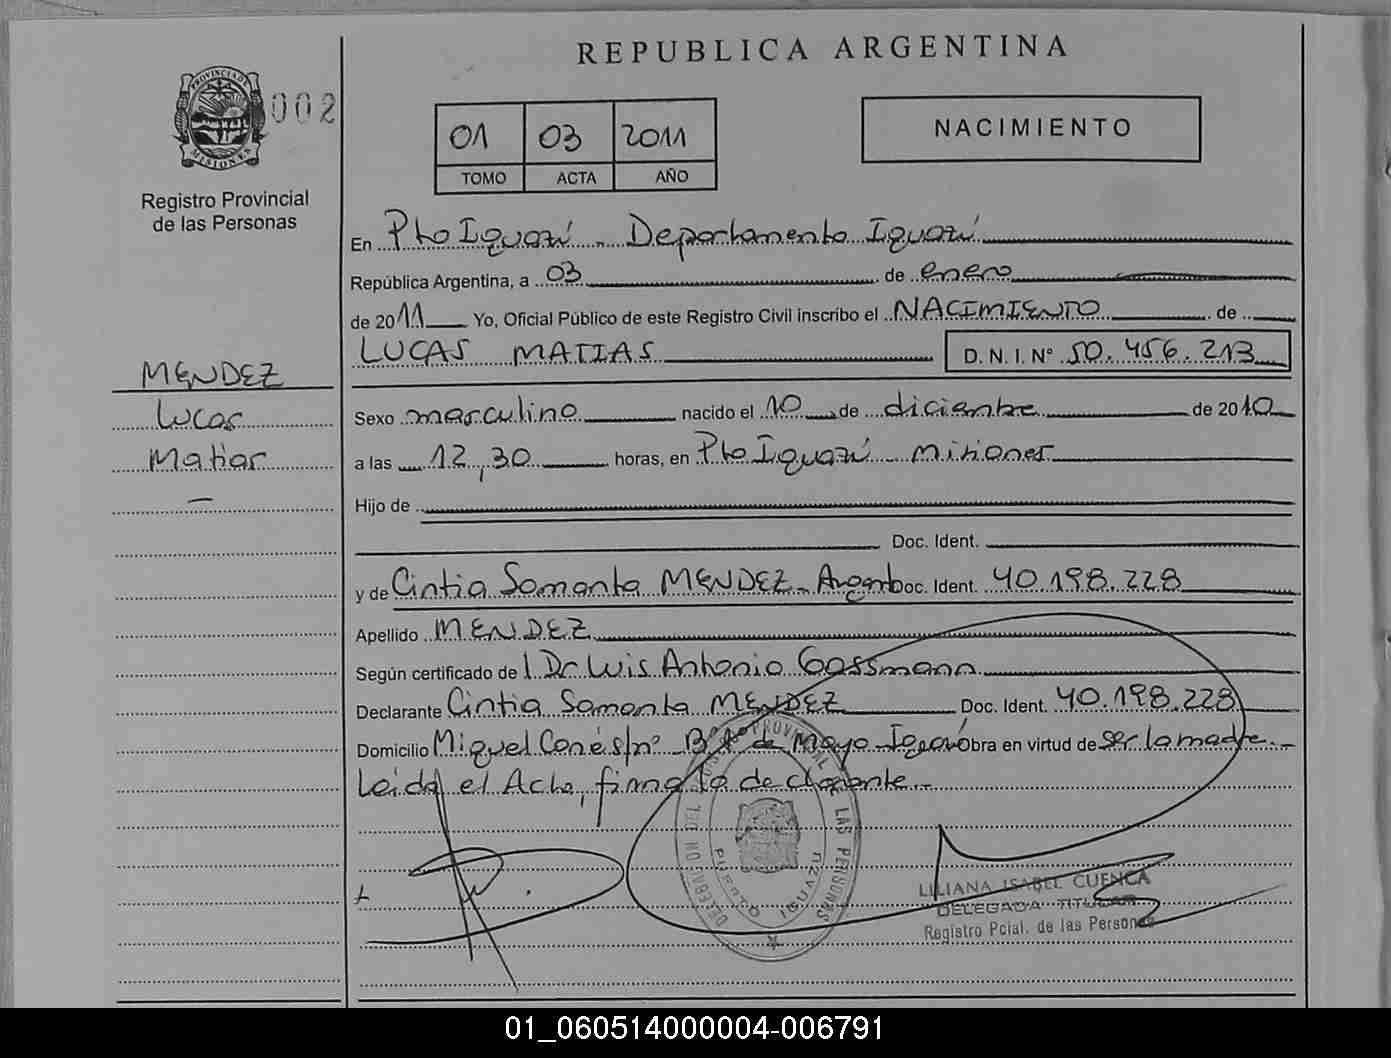 REPUBLICA ARGENTINA
PROVINCIA DE MISIONES
002
Registro Provincial
de las Personas
01 03 2011
TOMO ACTA AÑO
NACIMIENTO
En Pto Iguazú - Departamento Iguazú
República Argentina, a 03 de enero
de 2011 Yo, Oficial Público de este Registro Civil inscribo el NACIMIENTO de
LUCAS MATIAS D. N. I. N° 50.456.213
MENDEZ
Lucas
Matias
Sexo masculino nacido el 10 de diciembre de 2010
a las 12,30 horas, en Pto Iguazú - Misiones
Hijo de
Doc. Ident.
y de Cintia Samanta MENDEZ - Argent Doc. Ident. 40.198.228
Apellido MENDEZ
Según certificado del Dr Luis Antonio Gassmann
Declarante Cintia Samanta MENDEZ Doc. Ident. 40.198.228
Domicilio Miguel Cané s/nº B 1º de Mayo - Iguazú Obra en virtud de ser la madre.-
Leída el Acta, firma la declarante.-
DELEGACION DEL REGISTRO PROVINCIAL DE LAS PERSONAS
PUERTO IGUAZU
LILIANA ISABEL CUENCA
DELEGADA TITULAR
Registro Pcial. de las Personas
01_060514000004-006791